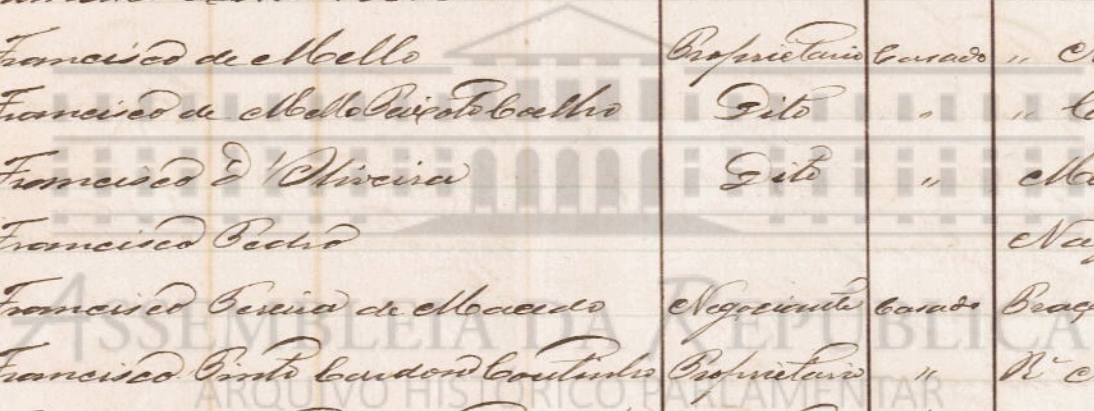 Francisco de Mello Proprietario Casado "
Francisco de Mello Peixoto Coelho Dito " "
Francisco d'Oliveira Dito "
Francisco Pedro
Francisco Pereira de Macedo Negociante Casado
Francisco Pinto Cardozo Coutinho Proprietario "
ASSEMBLEIA DA REPÚBLICA
ARQUIVO HISTÓRICO PARLAMENTAR